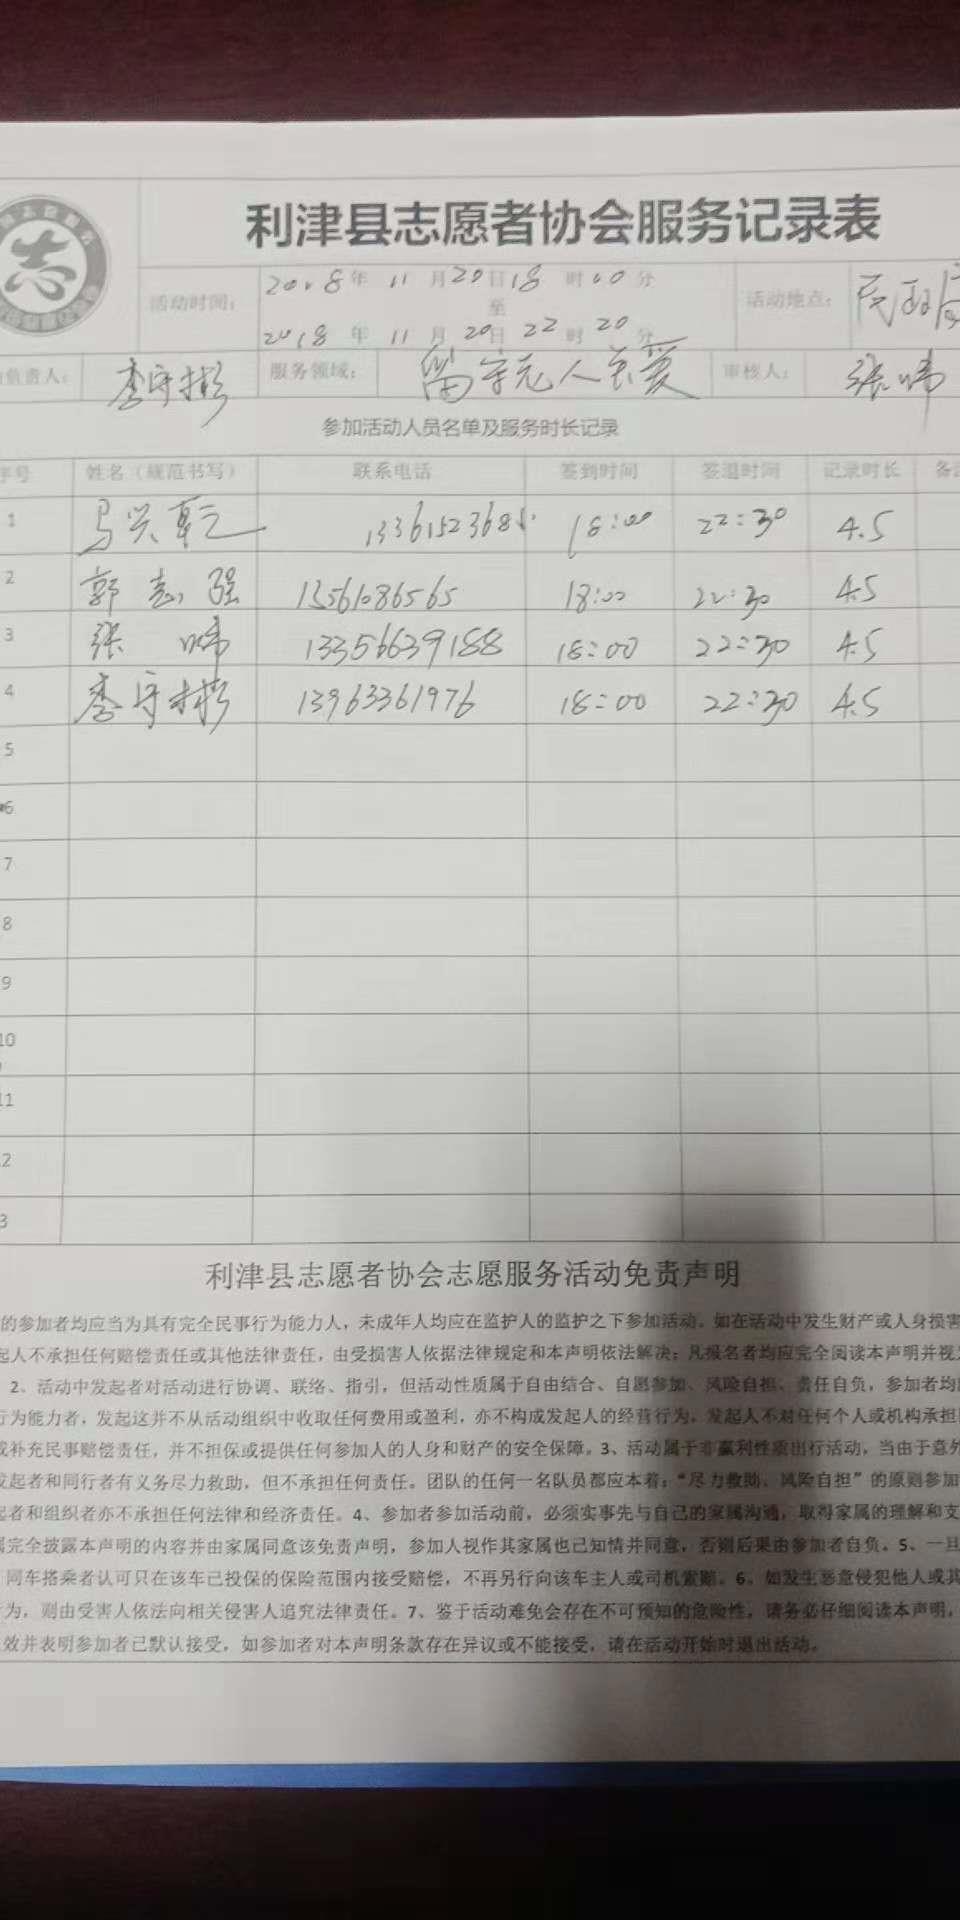 利津县志愿者协会服务记录表
活动时间： 2018年 11月20日18时00分
至
2018年 11月20日22时20分
活动地点： 民政局
负责人： 李守彬 服务领域： 留守老人关爱 审核人： 张帅
参加活动人员名单及服务时长记录
序号 姓名（规范书写） 联系电话 签到时间 签退时间 记录时长
1 马兴 18:00 22:30 4.5
2 郭志强 13561086565 18:00 22:30 4.5
3 张 13356639188 18:00 22:30 4.5
4 李守彬 13963361976 18:00 22:30 4.5
5
6
7
8
9
10
11
2
3
利津县志愿者协会志愿服务活动免责声明
的参加者均应当为具有完全民事行为能力人，未成年人均应在监护人的监护之下参加活动。如在活动中发生财产或人身损害
起人不承担任何赔偿责任或其他法律责任，由受损害人依据法律规定和本声明依法解决；凡报名者均应完全阅读本声明并视
2、活动中发起者对活动进行协调、联络、指引，但活动性质属于自由结合、自愿参加、风险自担、责任自负，参加者均
行为能力者，发起这并不从活动组织中收取任何费用或盈利，亦不构成发起人的经营行为，发起人不对任何个人或机构承担
或补充民事赔偿责任，并不担保或提供任何参加人的人身和财产的安全保障。3、活动属于非赢利性质出行活动，当由于意外
发起者和同行者有义务尽力救助，但不承担任何责任。团队的任何一名队员都应本着：“尽力救助、风险自担”的原则参加
起者和组织者亦不承担任何法律和经济责任。4、参加者参加活动前，必须实事先与自己的家属沟通，取得家属的理解和支
属完全披露本声明的内容并由家属同意该免责声明，参加人视作其家属也已知情并同意，否则后果由参加者自负。5、一旦
同车搭乘者认可只在该车已投保的保险范围内接受赔偿，不再另行向该车主人或司机索赔。6、如发生恶意侵犯他人或其
行为，则由受害人依法向相关侵害人追究法律责任。7、鉴于活动难免会存在不可预知的危险性，请务必仔细阅读本声明，
效并表明参加者已默认接受，如参加者对本声明条款存在异议或不能接受，请在活动开始时退出活动。